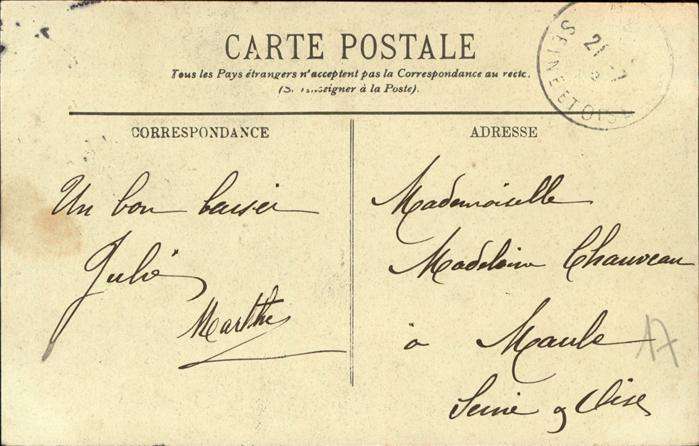 CARTE POSTALE
Tous les Pays étrangers n'acceptent pas la Correspondance au recto.
(Se renseigner à la Poste).
SEINE ET OISE
21 - 7
CORRESPONDANCE
Un bon baiser
Julie
Marthe
ADRESSE
Mademoiselle
Madeleine Chauveau
à Maule
Seine & Oise
17